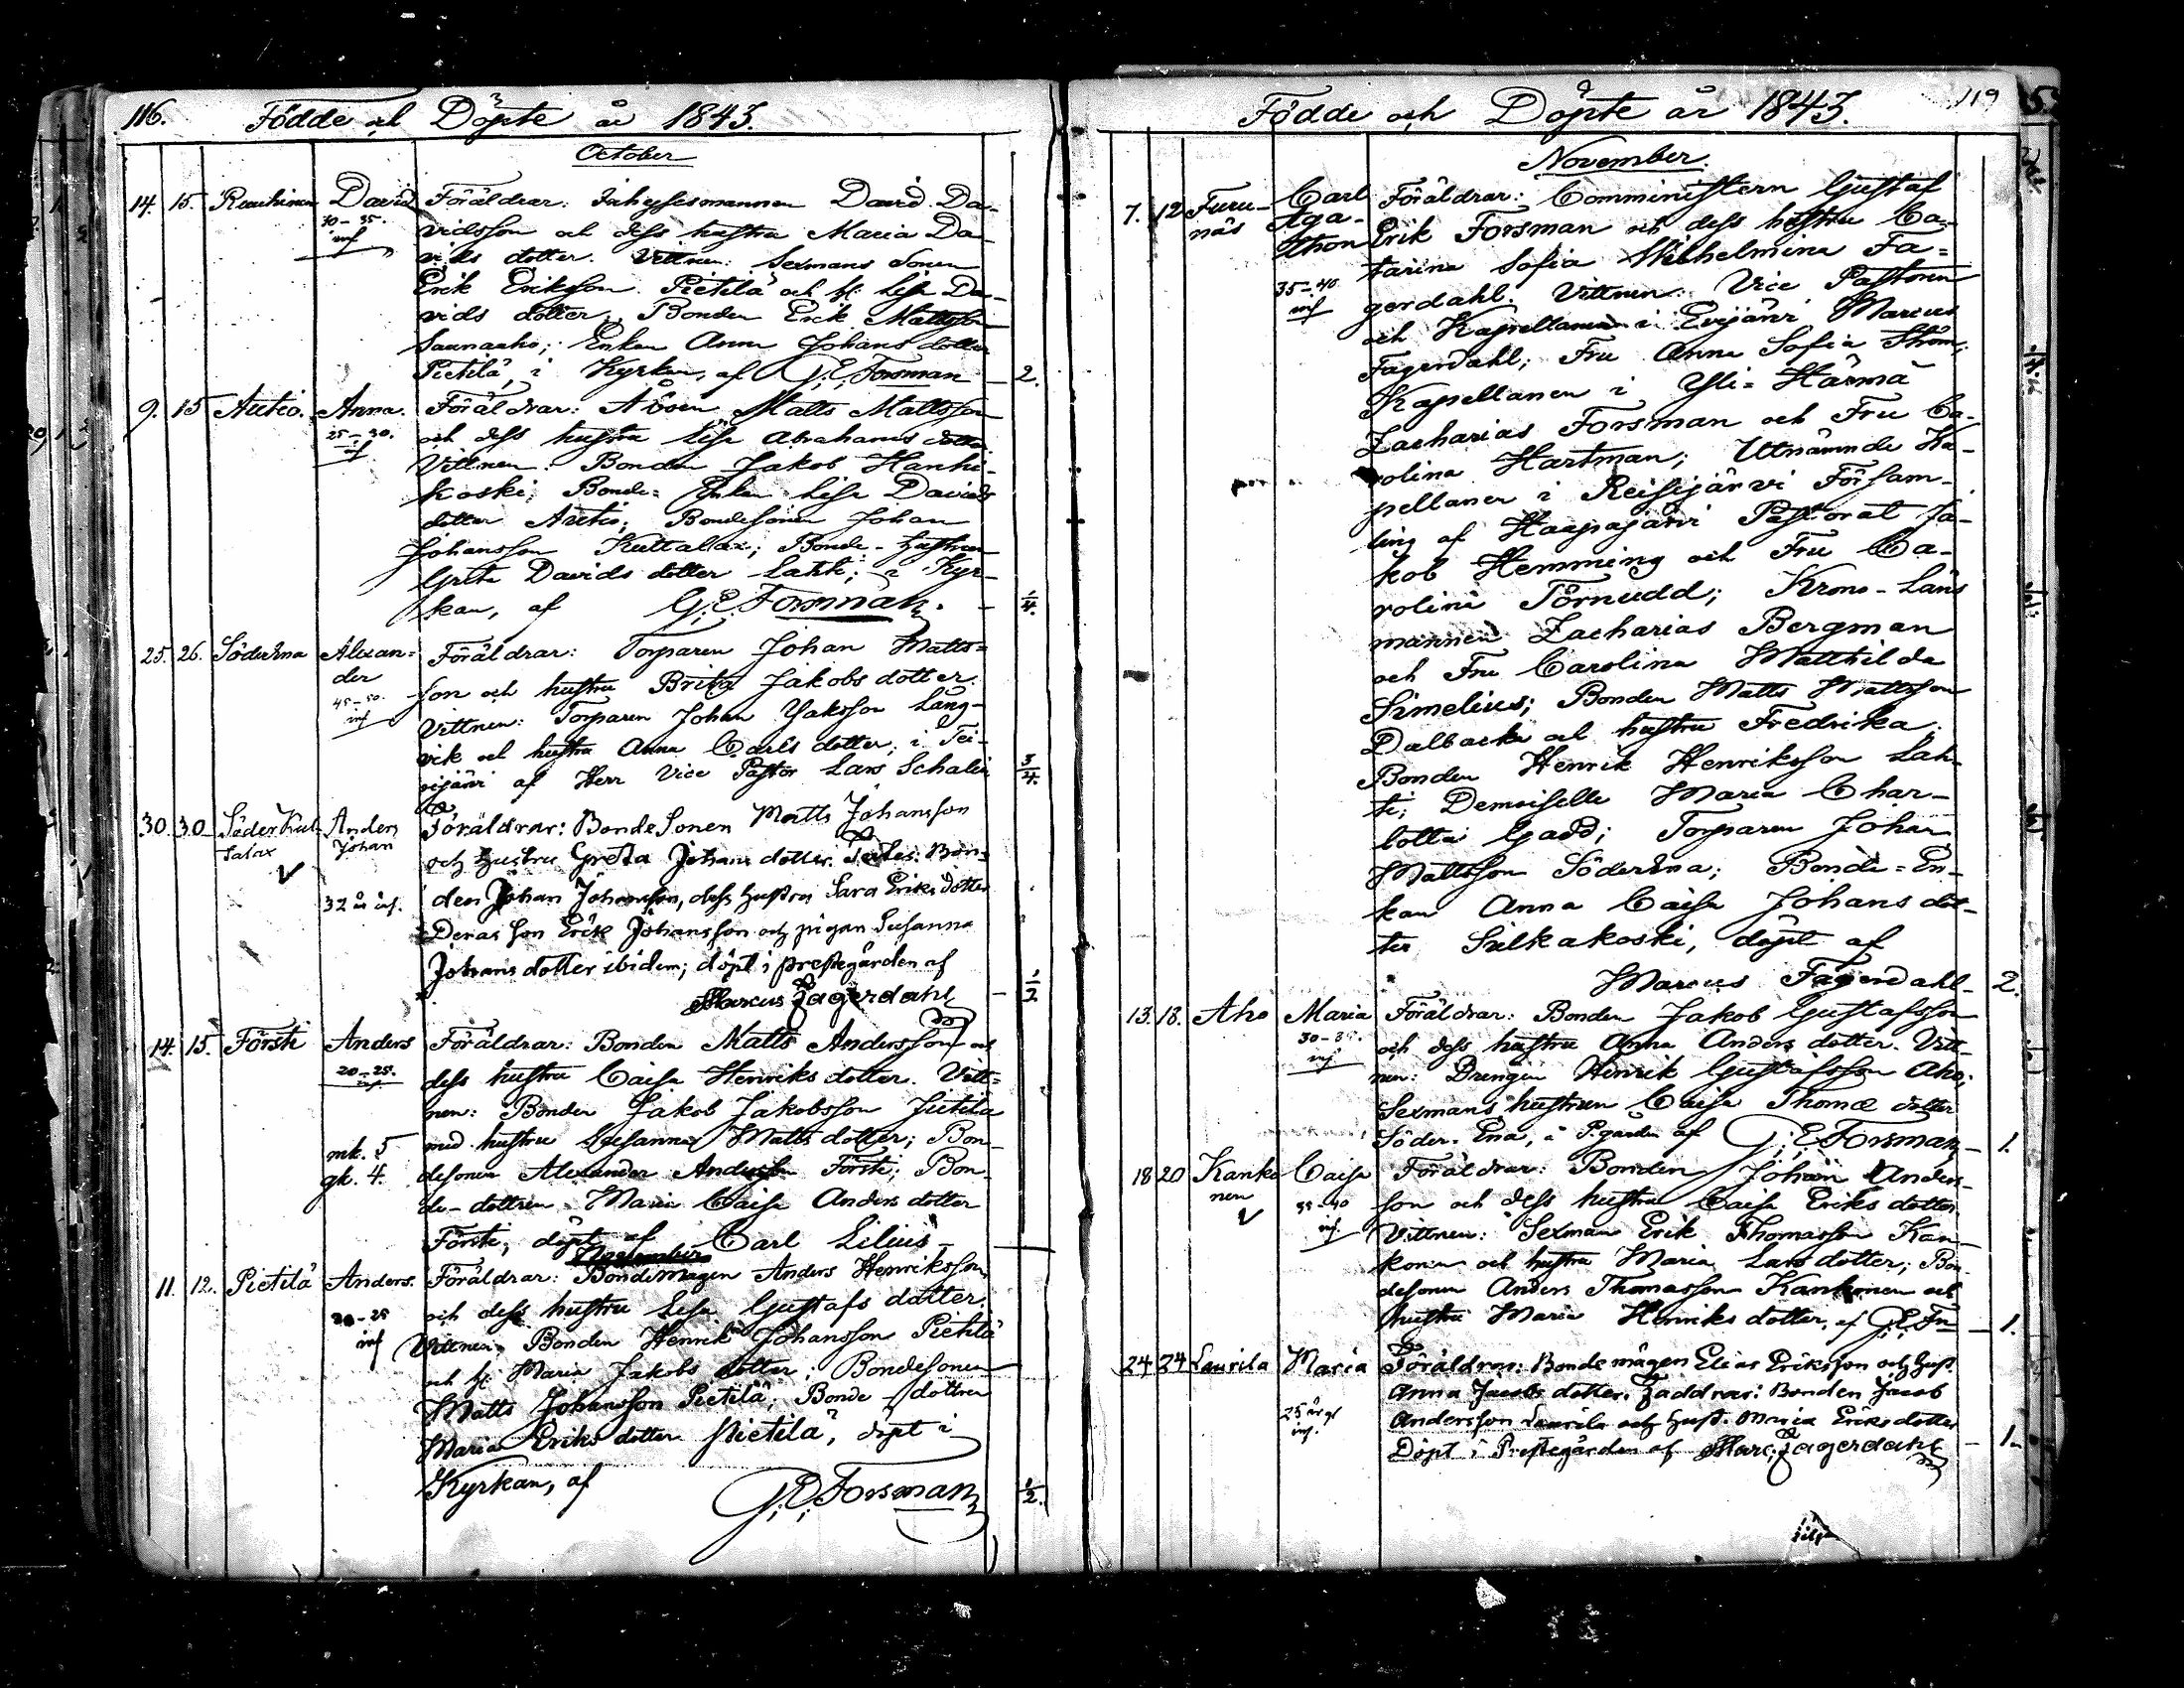 116. Födde och Döpte år 1843.
October
14. 15. David Föräldrar: David Da-
30-35. vidsson och dess hustru Maria Da-
inf vids dotter. Vittnen: Sexmans Sonen
Erik Eriksson Pietilä och h. Lisa Da-
vids dotter; Bonden Erik Mattsson
Saunaaho; Enkan Anna Johans dotter
Pietilä, i Kyrkan, af G. E. Forsman 2.
9. 15 Anna. Föräldrar: Matts Mattsson
25-30. och dess hustru Lisa Abrahams dotter
inf Vittnen: Bonden Jakob Hanhi-
koski; Bonde-Enkan Lisa Davids
dotter; Bondesonen Johan
Johansson Kuttalax; Bonde-hustrun
Greta Davids dotter; i Kyr-
kan, af G. E. Forsman. 1/4.
25. 26. Söder Ena Alexan- Föräldrar: Torparen Johan Matts-
der son och hustru Brita Jakobs dotter
45-50. Vittnen: Torparen Johan Lång-
inf vik och hustru Anna Carls dotter; i
af Herr Vice Pastor Lars Schalin 3/4.
30. 30 Söder Kut- Anders Föräldrar: BondeSonen Matts Johansson
talax Johan och hustru Greta Johans dotter. Bon-
32 år inf. den Johan Johansson, dess hustru Sara Eriks dotter
Deras son Erik Johansson och pigan Susanna
Johans dotter ibidem; döpt i prestegården af
Marcus Fagerdahl 1/2
14. 15. Försti Anders Föräldrar: Bonden Matts Andersson och
20-25. dess hustru Caisa Henriks dotter. Vitt-
inf nen: Bonden Jakob Jakobsson Jutila
mk. 5 med hustru Susanna Matts dotter; Bon-
gk. 4. desonen Alexander Andersson Försti; Bon-
de-dottren Maria Caisa Anders dotter
Försti, döpt af Carl Lilius
November
11. 12. Pietilä Anders. Föräldrar: Bondemågen Anders Henriksson
20-25 och dess hustru Lisa Gustafs dotter.
inf Vittnen: Bonden Henrik Johansson Pietilä
och h. Maria Jakobs dotter; Bondesonen
Matts Johansson Pietilä; Bonde-dottren
Maria Eriks dotter Pietilä, döpt i
Kyrkan, af G. E. Forsman 1/2.
Födde och Döpte år 1843. 119
November.
7. 12 Furu- Carl Föräldrar: Comministern Gustaf
näs Aga- Erik Forsman och dess hustru Ca-
thon tarina Sofia Wilhelmina Fa-
35-40 gerdahl. Vittnen: Vice Pastoren
inf och Kapellanen i Evijärvi Marcus
Fagerdahl; Fru Anna Sofia Ström;
Kapellanen i Yli-Härmä
Zacharias Forsman och Fru Ca-
rolina Hartman; Utnämnde Ka-
pellanen i Reisijärvi Försam-
ling af Haapajärvi Pastorat Ja-
kob Hemming och Fru Ca-
rolina Törnudd; Krono-Läns
mannen Zacharias Bergman
och Fru Carolina Matthilda
Simelius; Bonden Matts Mattsson
Dalbacka och hustru Fredrika
Bonden Henrik Henriksson Lah-
ti; Demoiselle Maria Char-
lotta Gadd; Torparen Johan
Mattsson Söder Ena; Bonde-En-
kan Anna Caisa Johans dot-
ter Sulkakoski, döpt af
Marcus Fagerdahl 2.
13. 18. Aho Maria Föräldrar: Bonden Jakob Gustafsson
30-35. och dess hustru Anna Anders dotter. Vitt-
inf nen: Drengen Henrik Gustafsson Aho;
Sexmans hustrun Caisa Thomæ dotter
Söder-Ena, i P.gården af G. E. Forsman 1.
18 20 Kanko Caisa Föräldrar: Bonden Johan Anders-
nen 35-40 son och dess hustru Caisa Eriks dotter
inf Vittnen: Sexman Erik Thomasson Kan-
konen och hustru Maria Lars dotter; Bon-
desonen Anders Thomasson Kankonen och
hustru Maria Henriks dotter, af G. E. Fn 1.
24 24 Laurila Maria Föräldrar: Bonde mågen Elias Eriksson och hust.
Anna Jacobs dotter. Faddrar: Bonden Jacob
25 år gl Andersson Laurila och hust. Maria Eriks dotter
inf. Döpt i Prestegården af Marc. Fagerdahl 1